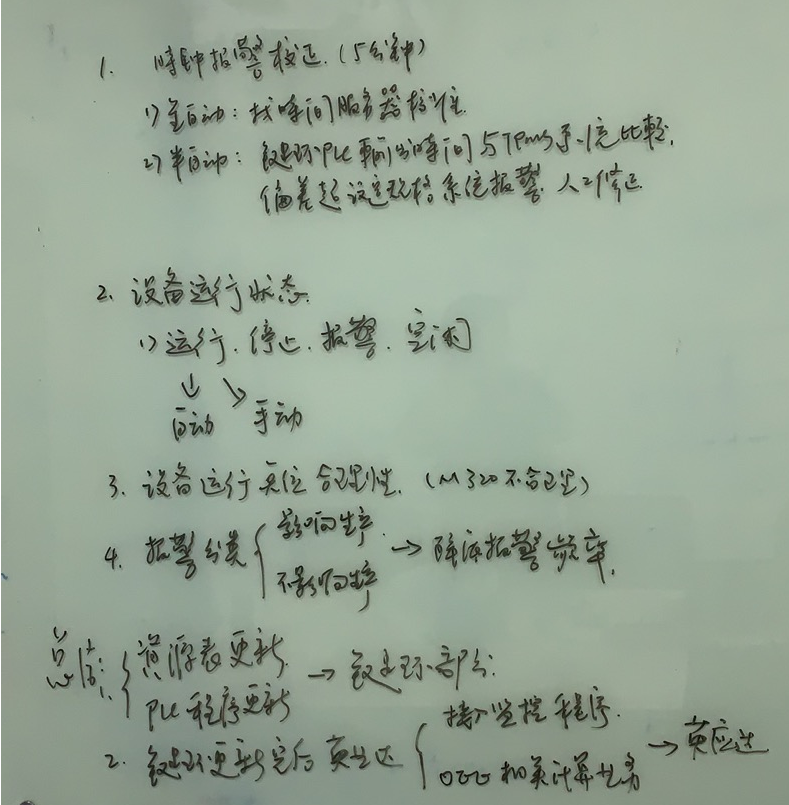 1. 时钟报警校正.(5分钟)
1) 全自动: 找时间服务器校准
2) 半自动: PLC 输出时间与TPM系统比较,
偏差超设定规格系统报警 人工修正
2. 设备运行状态.
1) 运行. 停止. 报警. 空闲
自动 手动
3. 设备运行 合理性. (M320不合理)
4. 报警分类 { 影响生产. 不影响生产 → 降低报警频率.
总结: { 资源表更新. PLC程序更新 → 部分.
2. 更新完后 { 接入监控程序. OEE相关计算业务 →